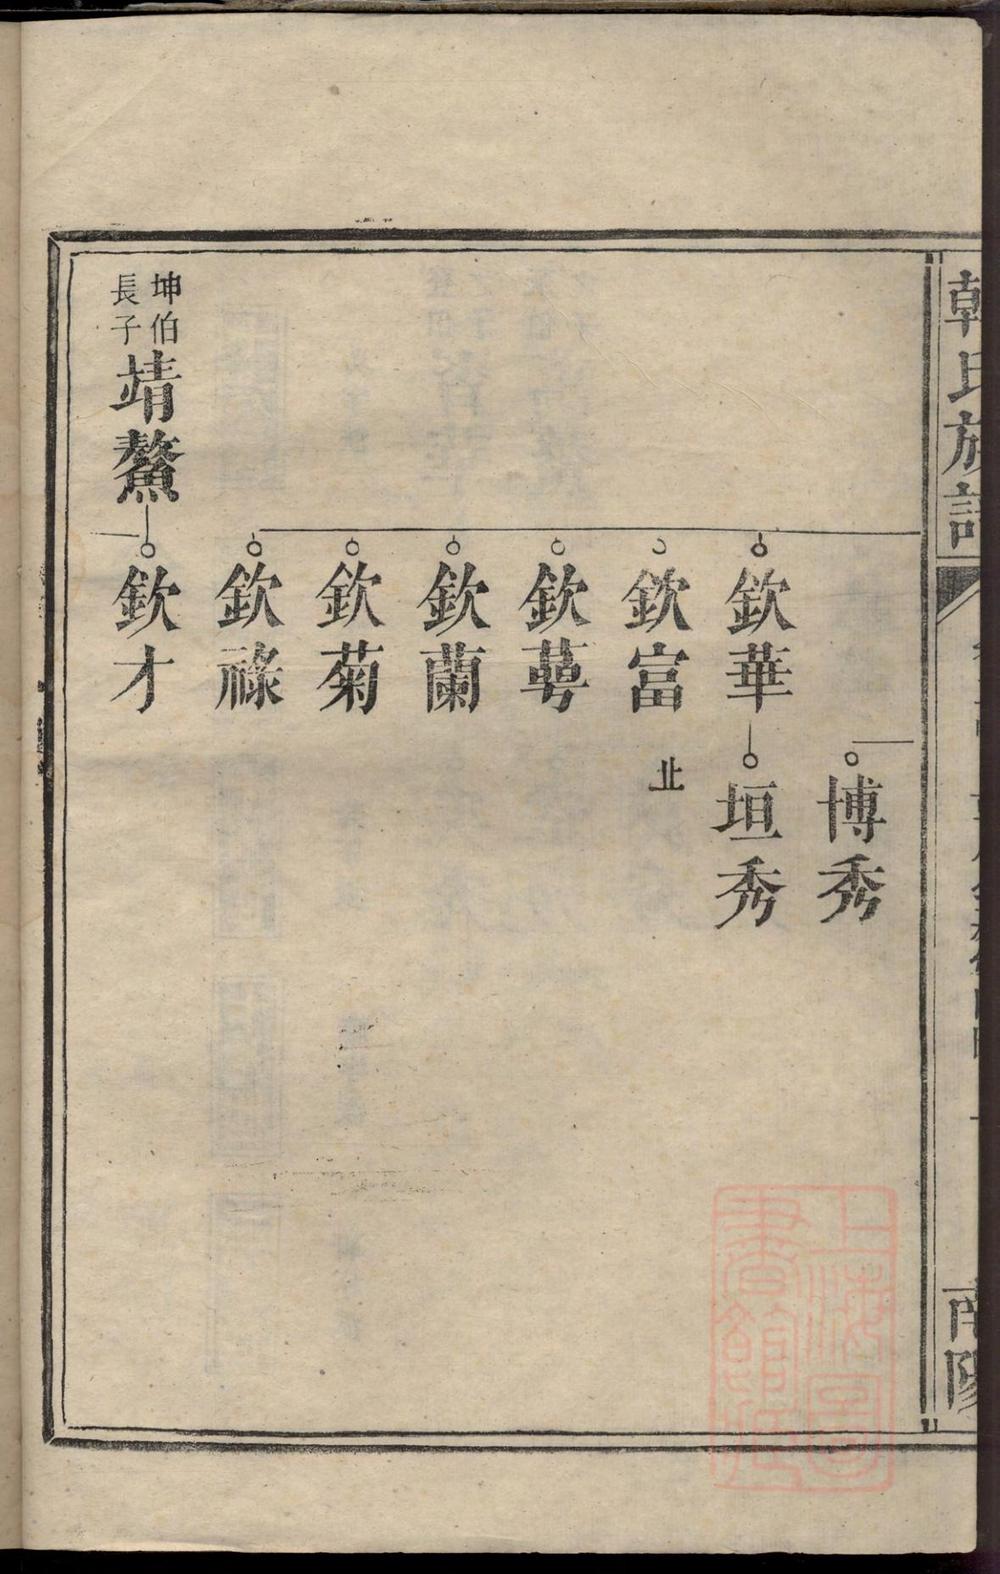 韓氏族譜
南陽
博秀
欽華
垣秀
欽富
止
欽萼
欽蘭
欽菊
欽祿
坤伯
長子
靖鰲
欽才
上海圖
書館藏